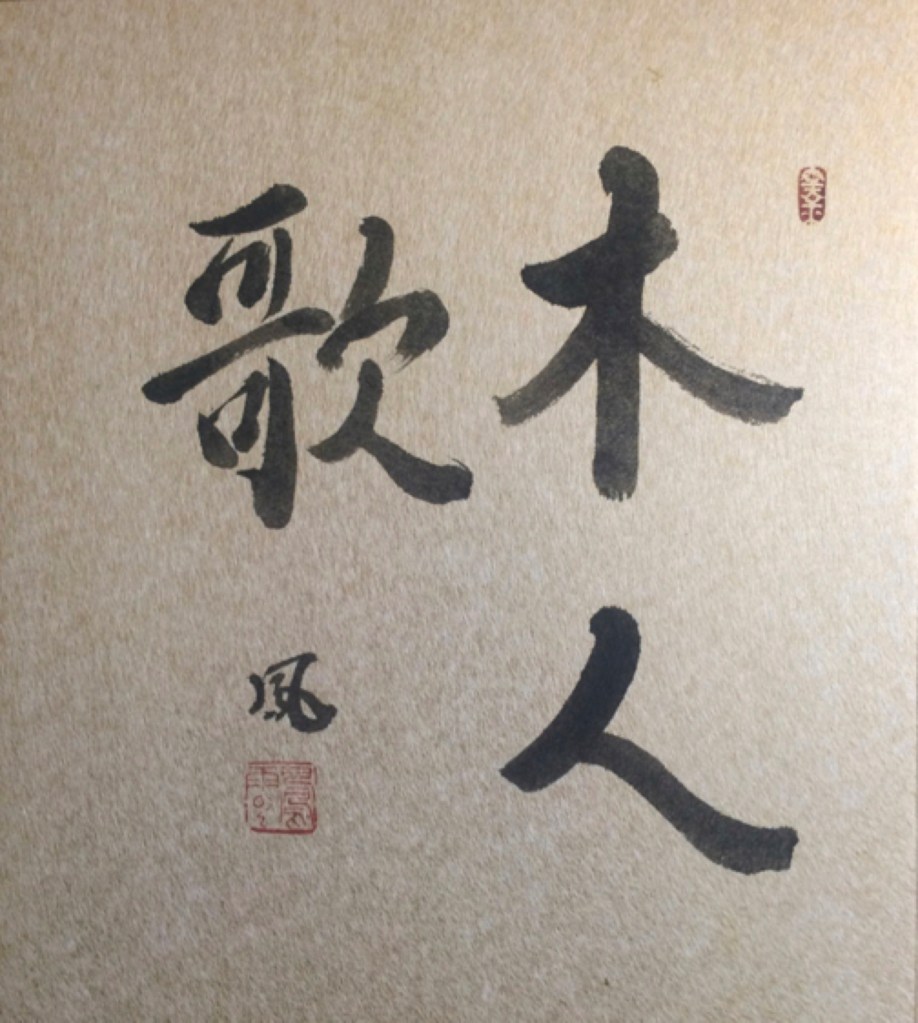 木人
歌
風